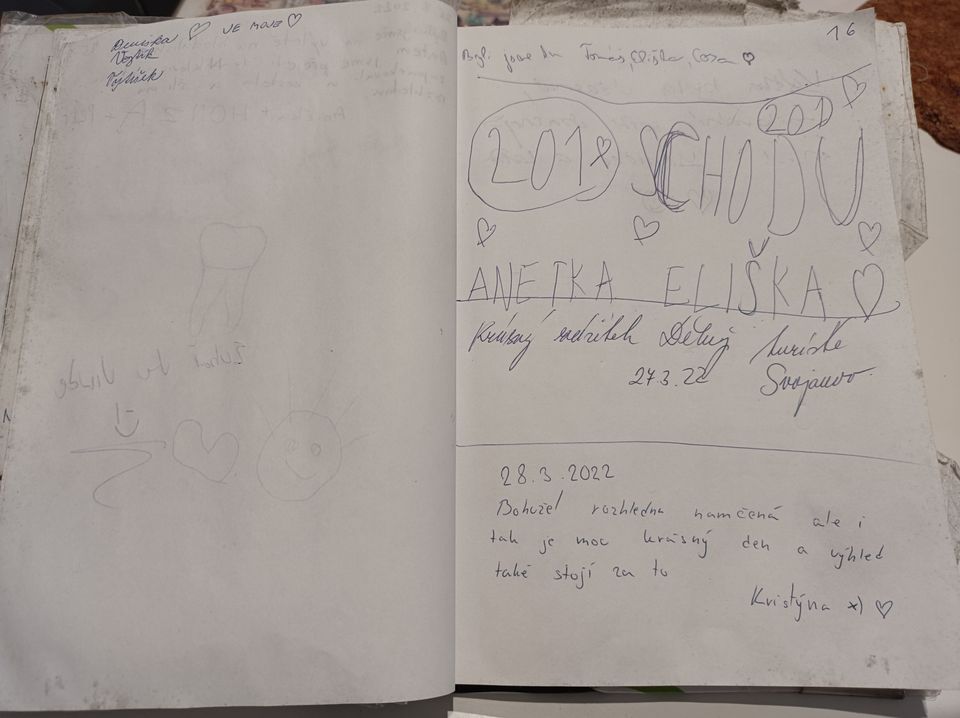 Deniska ♡ JE MOJE ♡
Vojtík
Vojtíšek
16
Byli jsme tu Tomáš, Eliška, Cora ♥
201
201 SCHODU
ANETKA ELIŠKA ♡
Krásný zážitek Děkují turisté
27.3.22 Svojanov
28.3.2022
Bohužel rozhledna namčená ale i
tak je moc krásný den a výhled
také stojí za to
Kristýna x) ♡